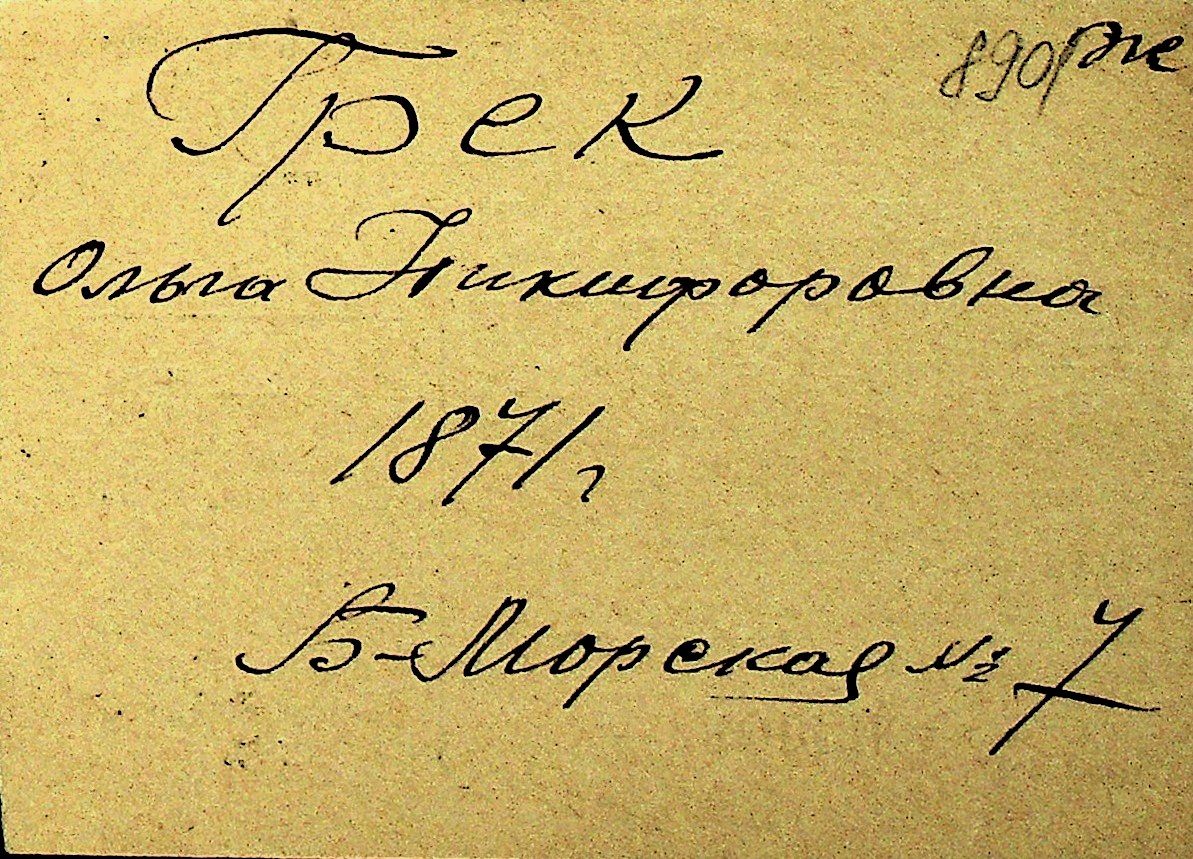 890
Грек
Ольга Никифоровна
1871г
Б-Морская № 7